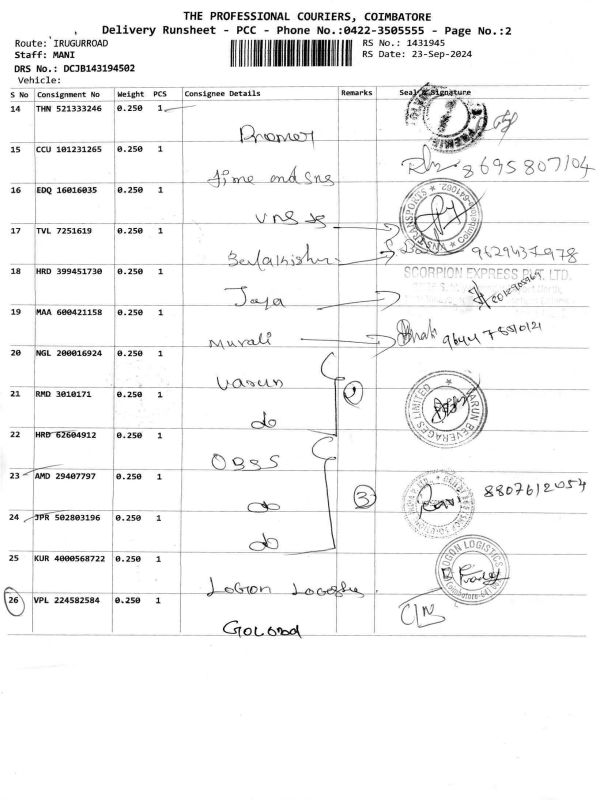 THE PROFESSIONAL COURIERS, COIMBATORE
Delivery Runsheet - PCC - Phone No.:0422-3505555 - Page No.:2
Route: IRUGURROAD RS No.: 1431945
Staff: MANI RS Date: 23-Sep-2024
DRS No.: DCJB143194502
Vehicle:
S No Consignment No Weight PCS Consignee Details Remarks Seal & Signature
14 THN 521333246 0.250 1
Premer
15 CCU 101231265 0.250 1
time and sns 8695807104
16 EDQ 16016035 0.250 1
VNS
17 TVL 7251619 0.250 1
18 HRD 399451730 0.250 1
SCORPION EXPRESS PVT. LTD.
Jaya
19 MAA 600421158 0.250 1
Murali
20 NGL 200016924 0.250 1
Varun
21 RMD 3010171 0.250 1
do
VARUN BEVERAGES LIMITED
22 HRD 62604912 0.250 1
OBSS
23 AMD 29407797 0.250 1
do 3 8807612054
24 JPR 502803196 0.250 1
do
25 KUR 4000568722 0.250 1
LOGON LOGISTICS
26 VPL 224582584 0.250 1